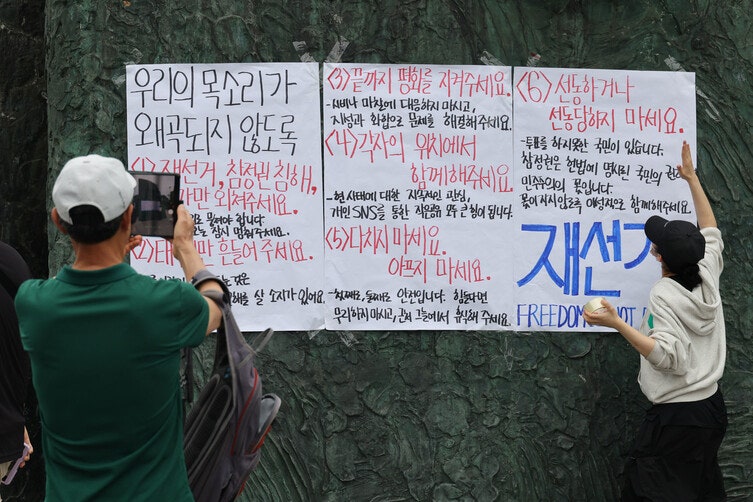 우리의 목소리가
왜곡되지 않도록
재선거, 참정권 침해,
만 외쳐주세요.
멈춰주세요.
<2> 태 만 흔들어 주세요.
해를 살 소지가 있어요.
<3> 끝까지 평화를 지켜주세요.
- 시비나 마찰에 대응하지 마시고,
지성과 화합으로 문제를 해결해주세요.
<4> 각자의 위치에서
함께해주세요.
- 현 사태에 대한 지속적인 관심,
개인 SNS를 통한 작은 모두 큰 힘이 됩니다.
<5> 다치지 마세요.
아프지 마세요.
- 첫째로, 둘째로 안전입니다. 힘들다면
무리하지 마시고, 근처 그늘에서 휴식해 주세요.
<6> 선동하거나
선동당하지 마세요.
- 투표를 하지 못한 국민이 있습니다.
참정권은 헌법에 명시된 국민의 권리
민주주의의 꽃입니다.
꽃이 지지 않도록 이성적으로 함께해
재선거
FREEDOM NOT